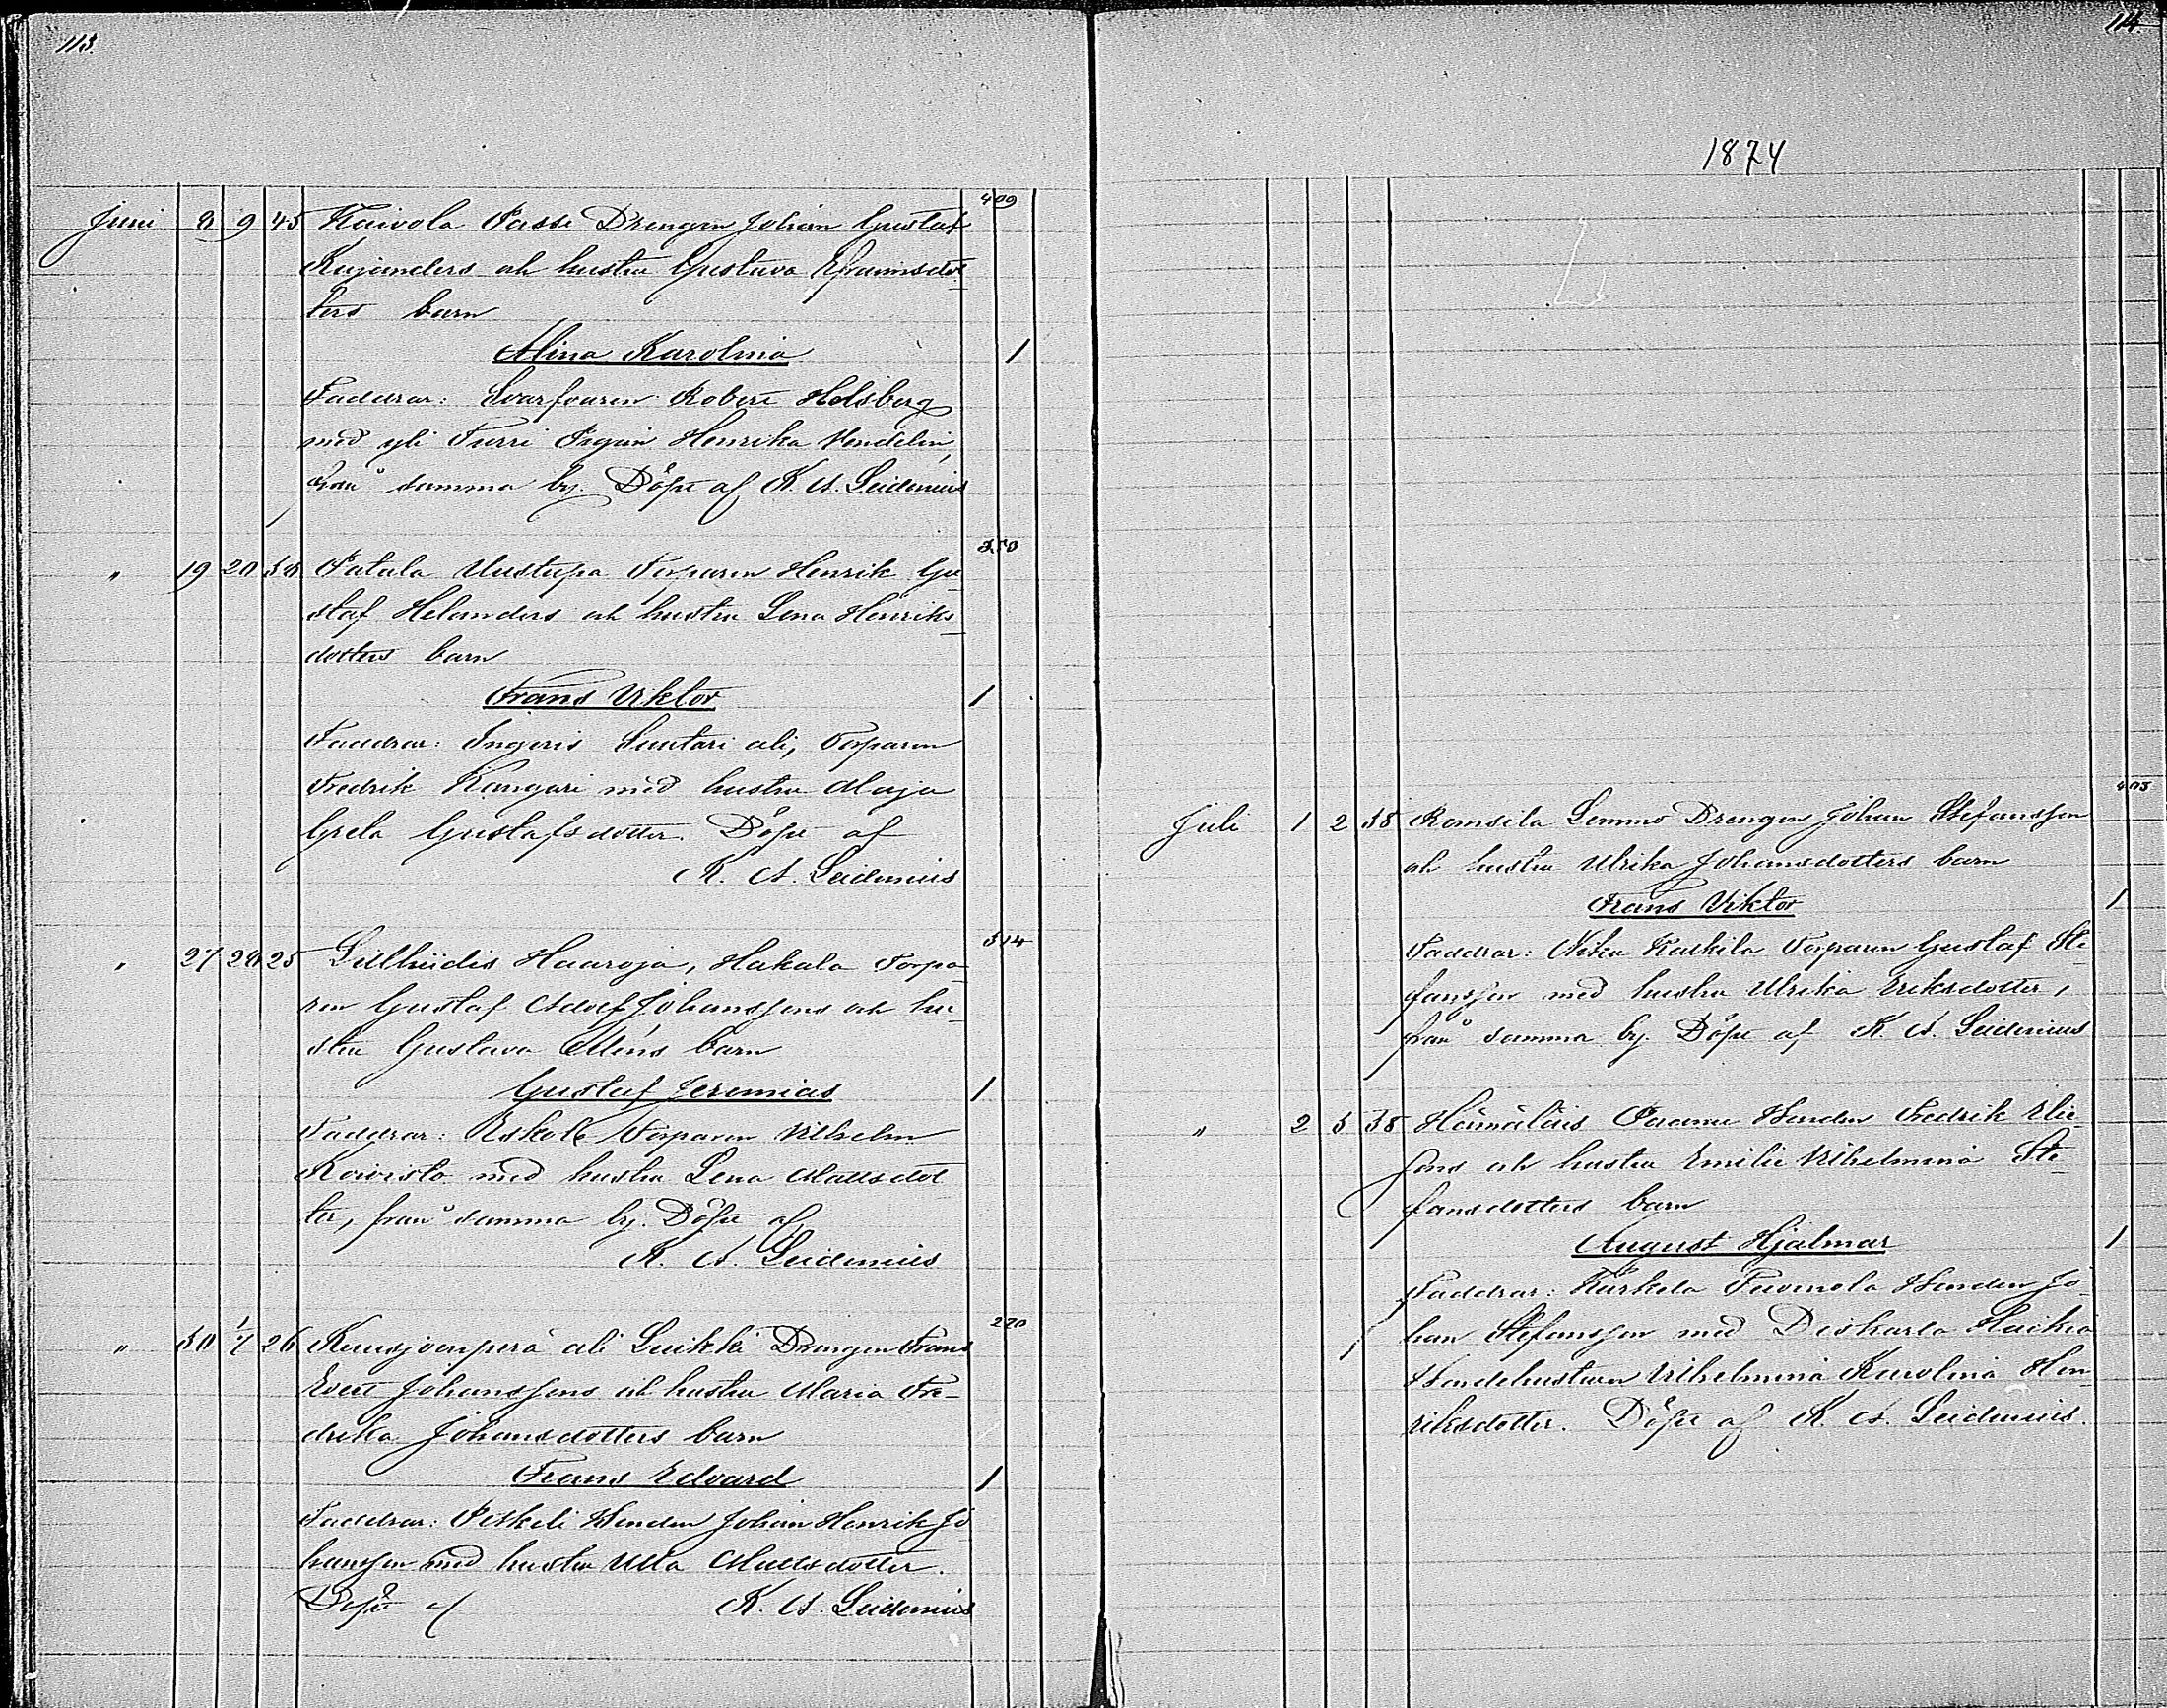 113.
409
Juni 8 9 45 Kaivola Passi Drengen Johan Gustaf
Kujanders och hustru Gustava Efraimsdot
ters barn
Alina Karolina 1
Faddrar: Svarfvaren Robert Helsberg
med yli Turri Pigan Henrika Vendelin,
från samma by. Döpt af K. A. Leidenius
350
" 19 20 30 Patala Uustupa Torparen Henrik Gu
staf Helanders och hustru Lena Henriks
dotters barn
Frans Viktor 1
Faddrar: Ingeris Suutari ali, Torparen
Fredrik Kangari med hustru Maja
Greta Gustafsdotter. Döpt af
K. A. Leidenius
314
" 27 28 25 Haaroja, Hakala Torpa
ren Gustaf Adolf Johanssons och hu
stru Gustava barn
Gustaf Jeremias 1
Faddrar: Eskola Torparen Vilhelm
Koivisto med hustru Lena Mattsdot
ter, från samma by. Döpt af
K. A. Leidenius
270
" 30 1/7 26 ali Luikki Drengen Frans
Evert Johanssons och hustru Maria Fre-
drika Johansdotters barn
Frans Edvard 1
Faddrar: Johan Henrik Jo
hansson med hustru Ulla Mattsdotter.
Döpt af K. A. Leidenius
114.
1874
403
Juli 1 2 38 Remsila Lemmo Drengen Johan Stefansson
och hustru Ulrika Johansdotters barn
Frans Viktor 1
Faddrar: Kaskila Torparen Gustaf Ste
fansson med hustru Ulrika Eriksdotter,
från samma by. Döpt af K. A. Leidenius
" 2 5 38 Paavu Bonden Fredrik Elie
sons och hustru Emilie Vilhelmina Ste
fansdotters barn
August Hjalmar 1
Faddrar: Kurkela Tuomola Bonden Jo
han Stefansson med Haikio
Bondehustrun Vilhelmina Karolina Hen
riksdotter. Döpt af K. A. Leidenius.